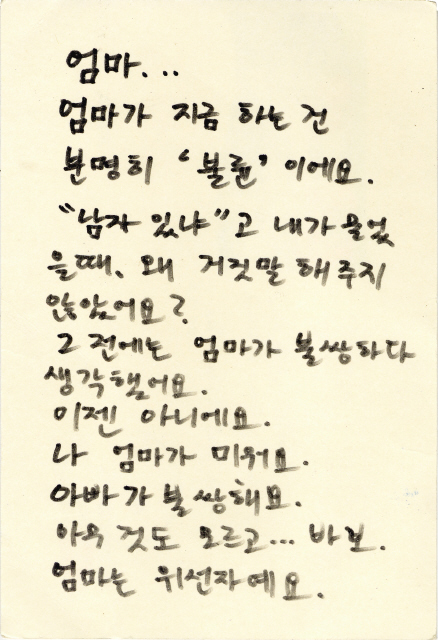 엄마...
엄마가 지금 하는 건
분명히 '불륜' 이에요.
"남자 있냐"고 내가 물었
을때, 왜 거짓말 해 주지
않았어요?
그 전에는 엄마가 불쌍하다
생각했어요.
이젠 아니에요.
나 엄마가 미워요.
아빠가 불쌍해요.
아무 것도 모르고... 바보.
엄마는 위선자예요.